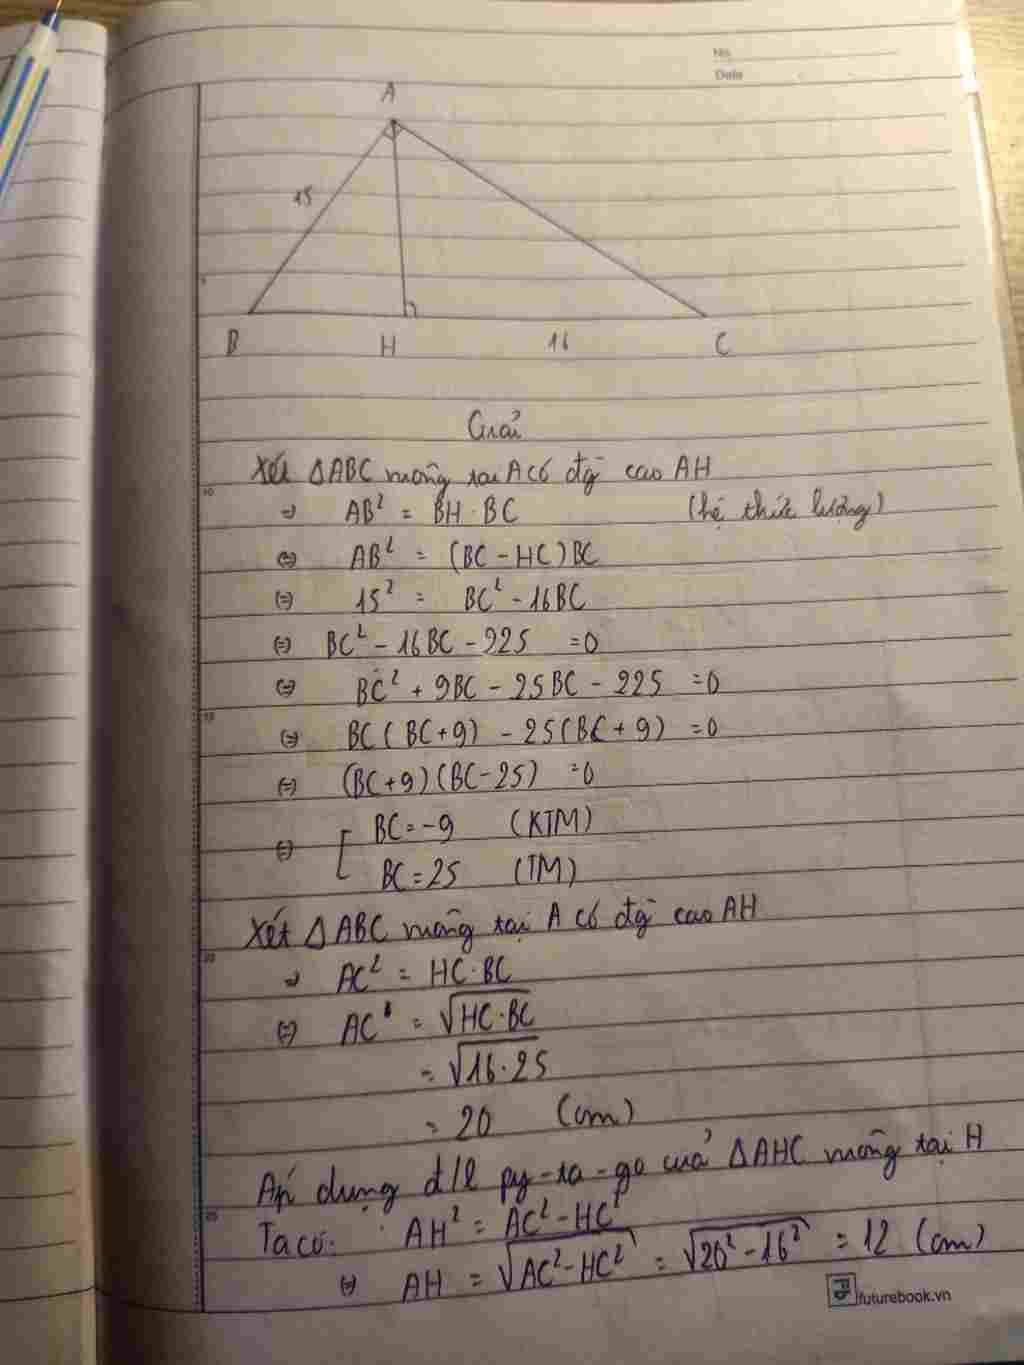 No.
Date
A
15
B H 16 C
Giải
Xét ΔABC vuông tại A có đg cao AH
→ AB² = BH · BC (hệ thức lượng)
⇔ AB² = (BC - HC)BC
⇔ 15² = BC² - 16BC
⇔ BC² - 16BC - 225 = 0
⇔ BC² + 9BC - 25BC - 225 = 0
⇔ BC(BC+9) - 25(BC+9) = 0
⇔ (BC+9)(BC-25) = 0
⇔ [ BC = -9 (KTM)
BC = 25 (TM)
Xét ΔABC vuông tại A có đg cao AH
→ AC² = HC · BC
⇔ AC = √HC·BC
= √16·25
= 20 (cm)
Áp dụng đ/l py-ta-go của ΔAHC vuông tại H
Ta có: AH² = AC² - HC²
⇔ AH = √AC² - HC² = √20² - 16² = 12 (cm)
futurebook.vn